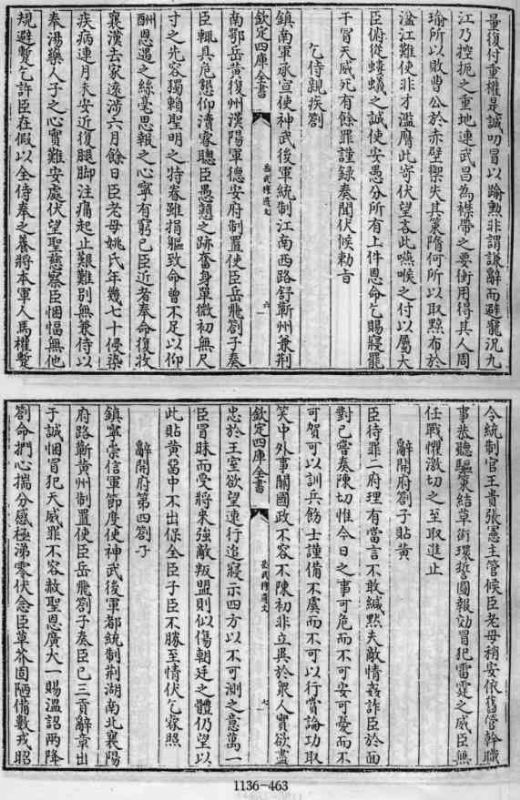 量復付重權是誠叨冒以踰勲非謂謙辭而避寵況九
江乃控扼之重地連武昌為襟帶之要衝用得其人周
瑜所以敗曹公於赤壁禦失其策隋何所以取黥布於
濫江難使非才濫膺此寄伏望吝此嚥喉之付以屬大
臣俯從螻蟻之誠使安愚分所有上件恩命乞賜寢罷
干冒天威死有餘罪謹録奏聞伏候勅旨
乞侍親疾劄
鎮南軍承宣使神武後軍統制江南西路舒蘄州兼荆
欽定四庫全書
岳武穆遺文
六
南鄂岳黄復州漢陽軍德安府制置使臣岳飛劄子奏
臣輒具危懇仰瀆睿聰臣愚戇之跡奮身單微初無尺
寸之先容獨賴聖明之特眷雖捐軀致命曾不足以仰
酬恩遇之絲毫思報之心寧有窮已臣近者奉命復收
襄漢去家遠涉六月餘日臣老母姚氏年幾七十侵染
疾病連月未安近復腿脚注痛起止艱難别無兼侍以
奉湯藥人子之心實難安處伏望聖慈察臣悃愊無他
規避暫乞許臣在假以全侍奉之養將本軍人馬權暫
令統制官王貴張憲主管候臣老母稍安依舊管幹職
事恭聽驅策結草銜環誓圖報効冒犯雷霆之威臣無
任戰懼激切之至取進止
辭開府劄子貼黄
臣待罪二府理有當言不敢緘黙夫敵情姦詐臣於面
對已嘗奏陳切惟今日之事可危而不可安可憂而不
可賀可以訓兵飭士謹備不虞而不可以行賞論功取
笑中外事關國政不容不陳初非立異於衆人實欲盡
欽定四庫全書
岳武穆遺文
七
忠於王室欲望速行追寢示四方以不可測之意萬一
臣冒昧而受將來強敵叛盟則似傷朝廷之體仍望以
此貼黄留中不出保全臣子臣不勝至情伏乞睿照
辭開府第四劄子
鎮寧崇信軍節度使神武後軍都統制荆湖南北襄陽
府路蘄黄州制置使臣岳飛劄子奏臣已三貢辭章出
于誠悃冒犯天威罪不容赦聖恩廣大一賜溫詔兩降
劄命捫心揣分感極涕零伏念臣草芥固陋備數戎昭
1136-463